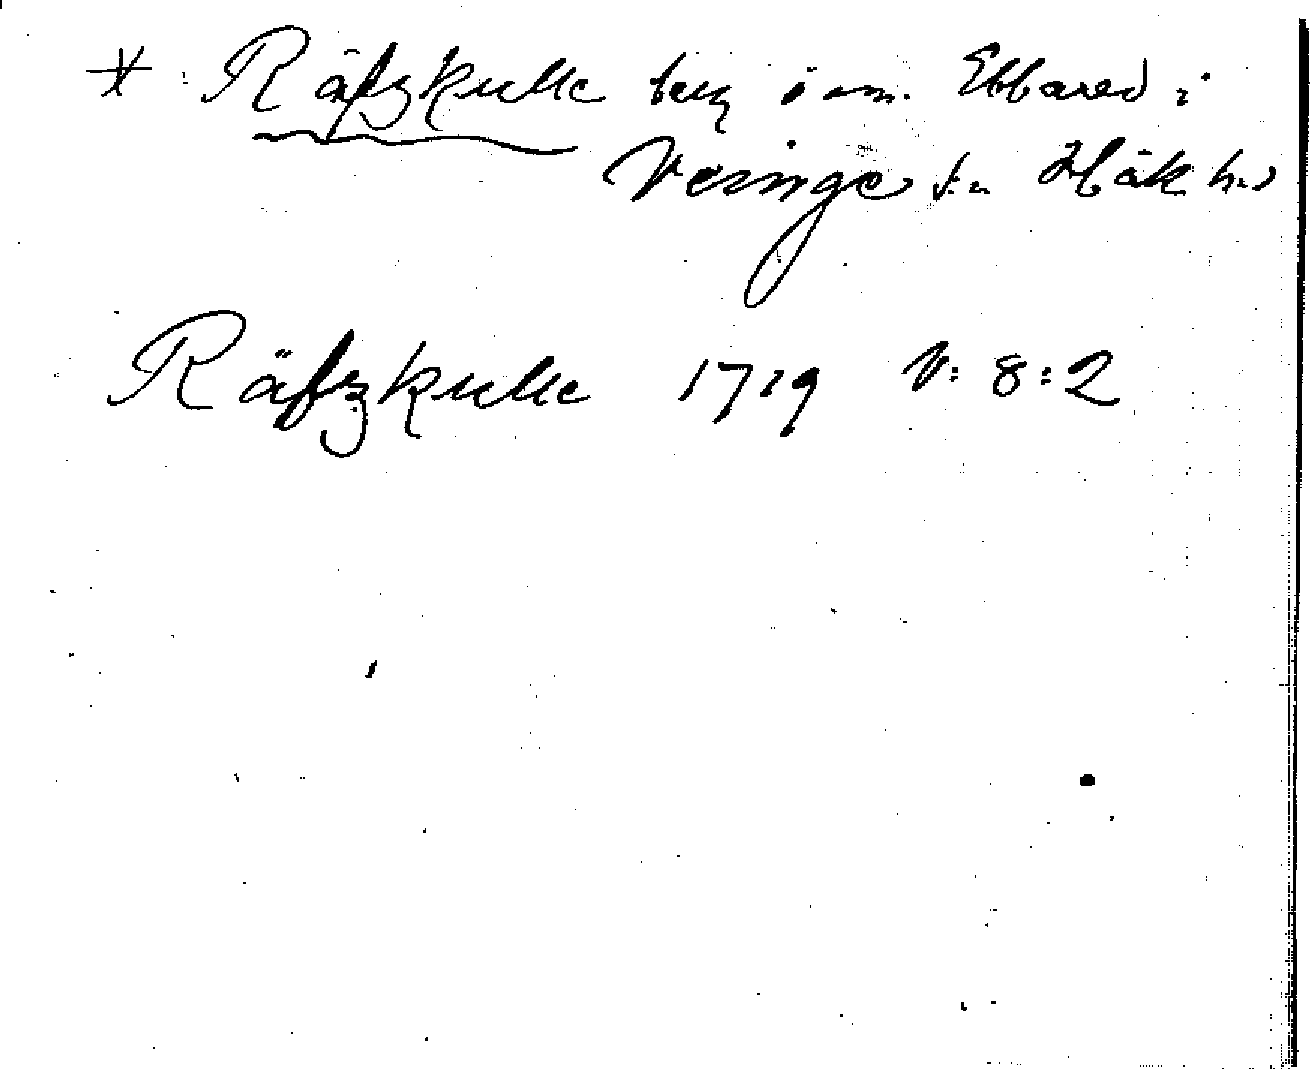 * Räfzkulle berg i om. Ebbared i
Veinge sn Hök hd
Räfzkulle 1719 V: 8:2